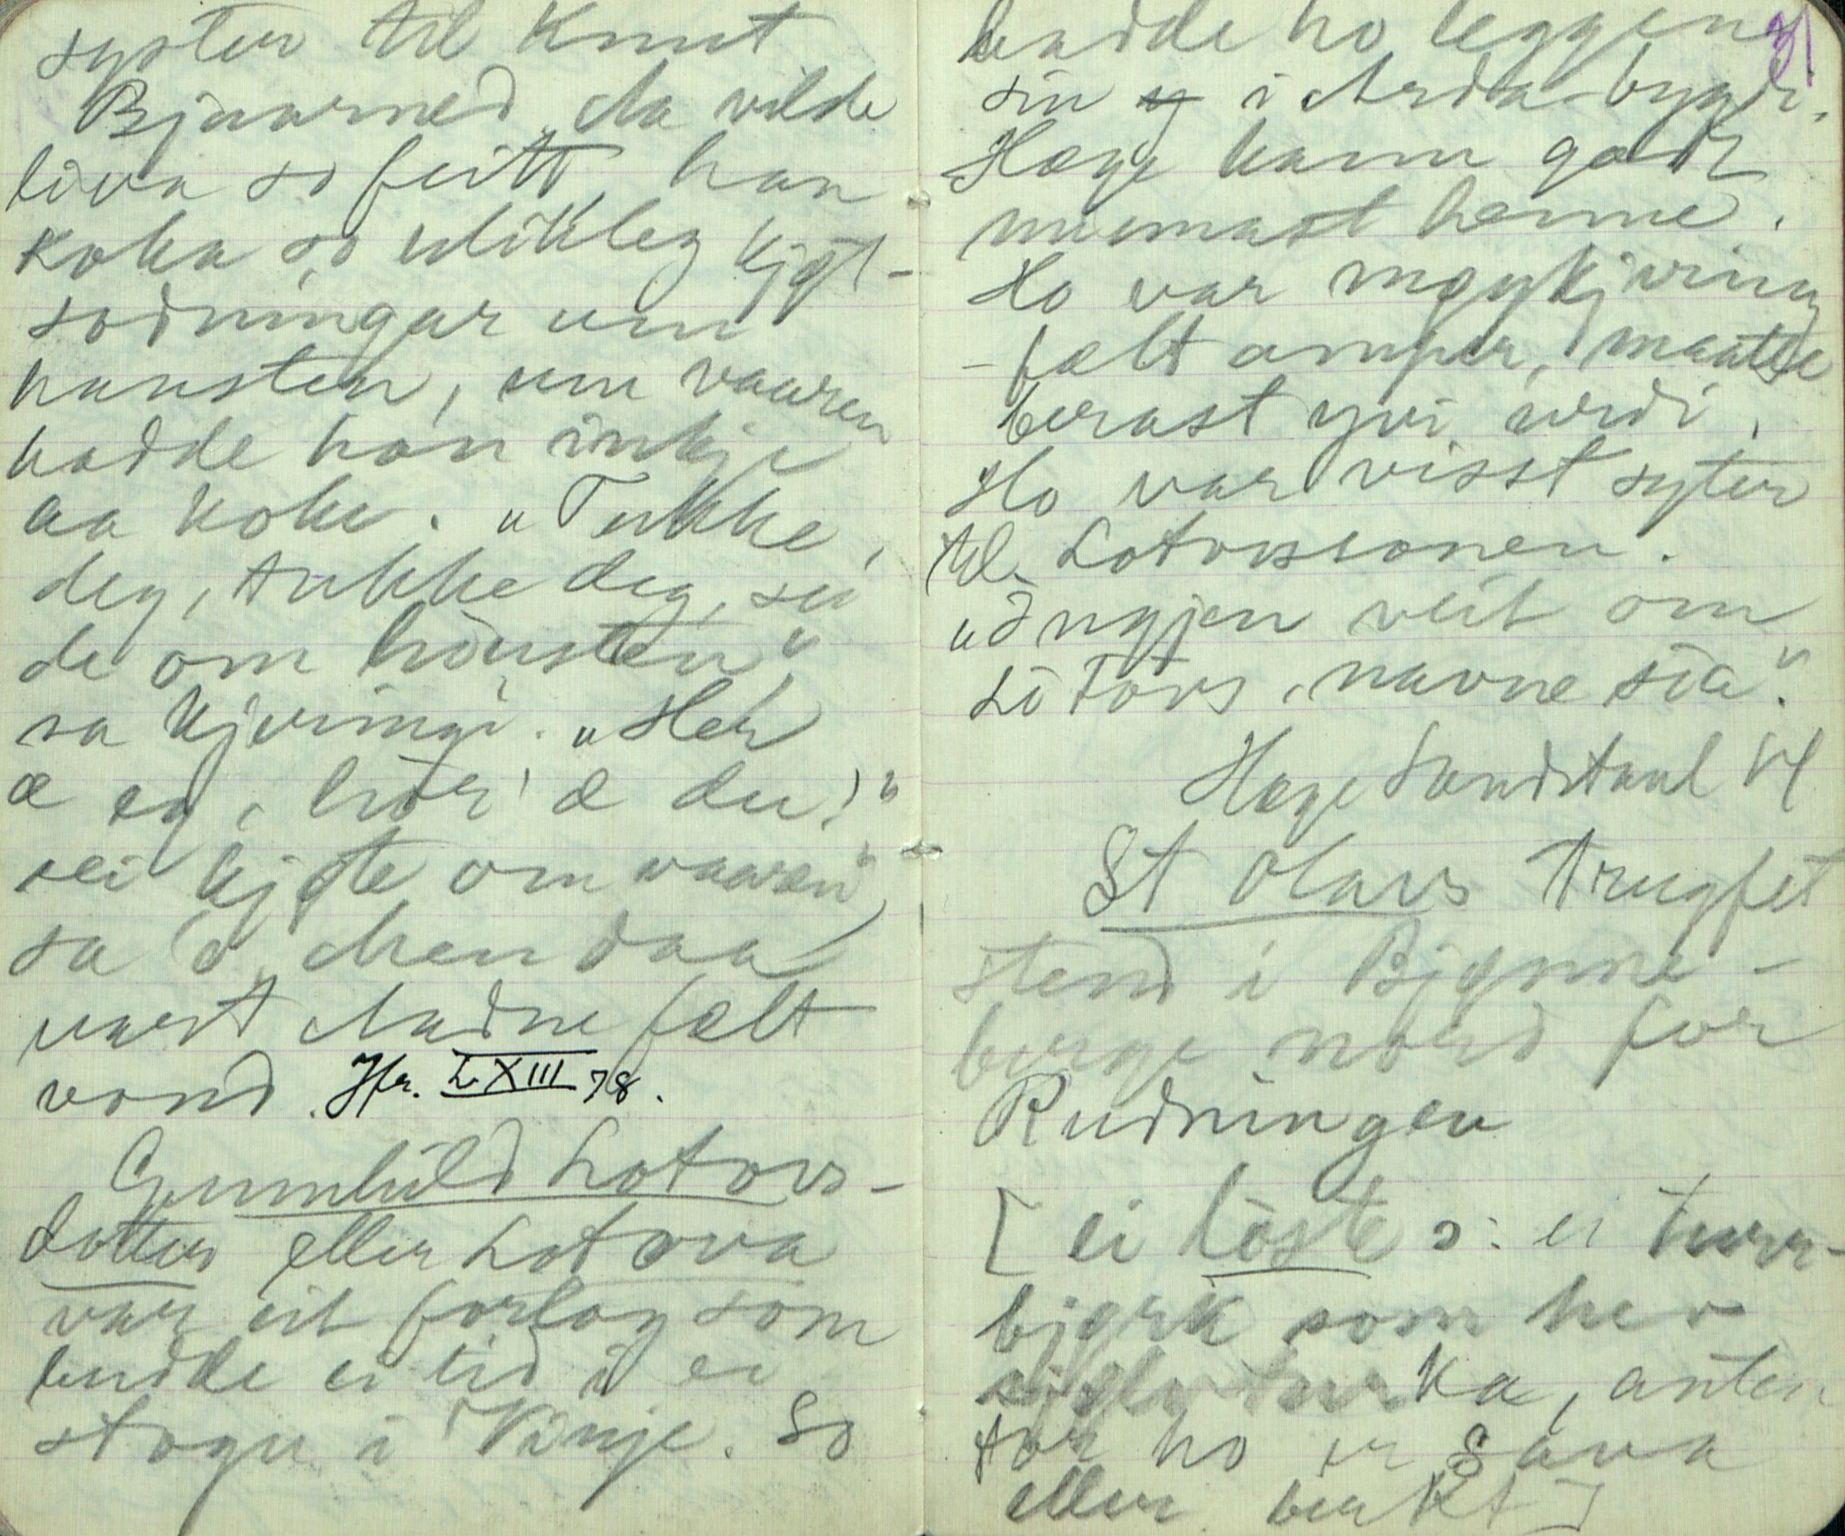 syster til Knut
Bjaarned. Aa vilde
liva so feitt, han
koka so utikleg kjøt-
sodningar um
hausten, um vaaren
hadde han inkje
aa koke. "Tukke,
deg, tukke deg, sei
de om håusten"
sa kjeringi. "Her
æ eg, hòr' æ du?"
sei kjøte om vaaren"
sa o. Men daa
vart Aadne fælt
vond. Jfr. LXIII 78.
Gunnhild Lotovs-
dotter eller Lotova
var eit forlog som
budde ei tid i ei
stogu i Vinje. So
hadde ho leggen
sin i Arda-bygdi.
Hæge kann godt
minnast henne.
Ho var møykjering
- fælt amper, maatte
berast yvi urdi.
Ho var visst syter
til Lotovsconen.
"Ingjen veit om
Lotovs, navne sia".
Hæge Sandstaul Vl
St Olavs trugfet
stend i Bjønne-
berge nord for
Rudningen
[ ei töste ɔ: ei turr-
bjørk som hev
sjølvturka, anten
for ho er Sava
eller berkt ]
31